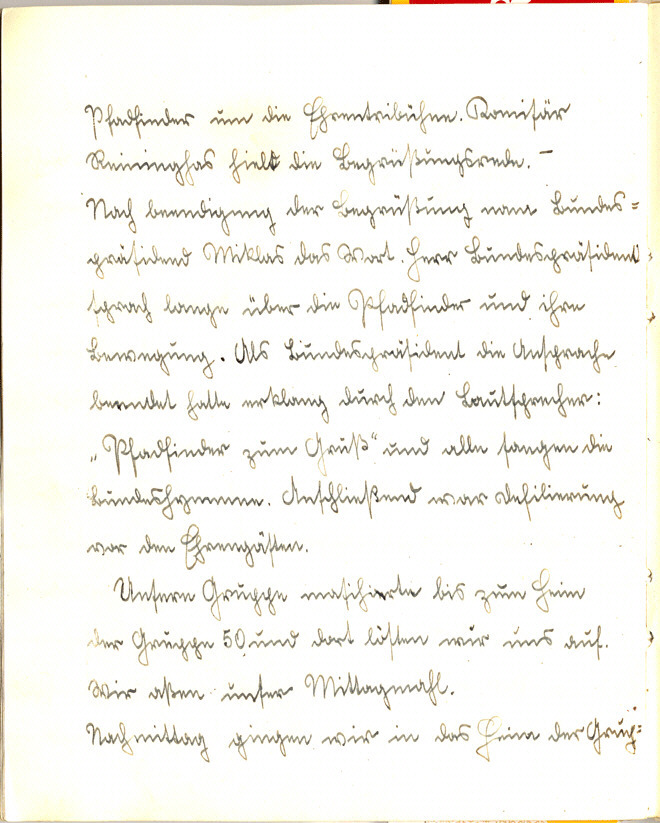 Pfadfinder um die Ehrentribühne. Komisär
Reininghas hielt die Begrüßungsrede. –
Nach beendigung der Begrüßung nam Bundes=
präsidend Miklas das Wort. Herr Bundespräsident
sprach lange über die Pfadfinder und ihre
Bewegung. Als Bundespräsident die Ansprache
beendet hatte erklang durch den Lautsprecher:
„Pfadfinder zum Gruß" und alle sangen die
Bundeshymne. Anschließend war Defilierung
vor den Ehrengästen.
Unsere Gruppe maschierte bis zum Heim
der Gruppe 50 und dort lösten wir uns auf.
Wir aßen unser Mittagmahl.
Nachmittag gingen wir in das Heim der Grup=